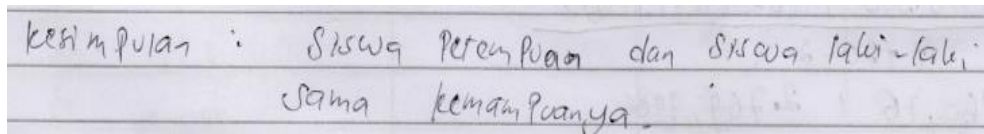 kesimpulan : Siswa Perempuan dan Siswa laki-laki
Sama kemampuanya.